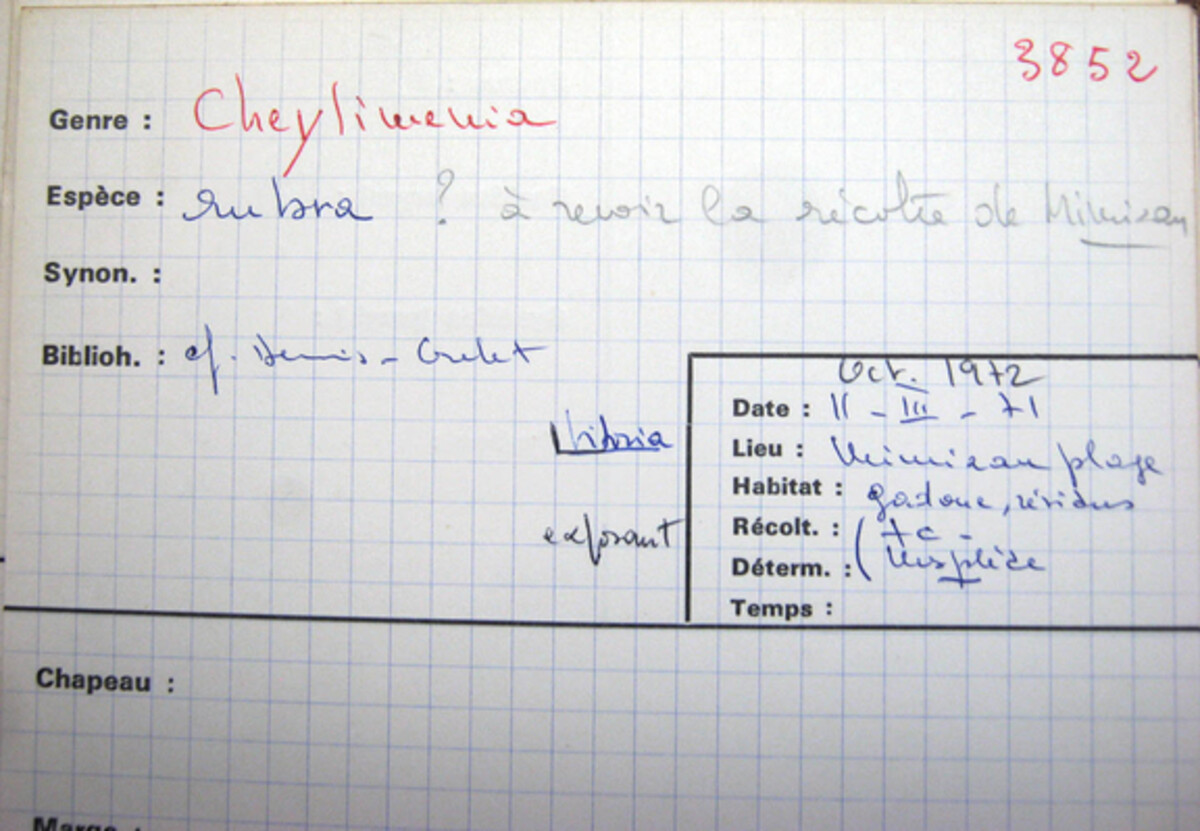 3852
Genre : Cheylimenia
Espèce : rubra ? à revoir la récolte de Mimizan
Synon. :
Biblioh. : cf. Grelet
Oct. 1972
Date : 11 - III - 71
Lieu : Mimizan plage
Habitat : gadoue, résidus
exposant
Récolt. :
Déterm. : Mesplède
Temps :
Chapeau :
Marge :